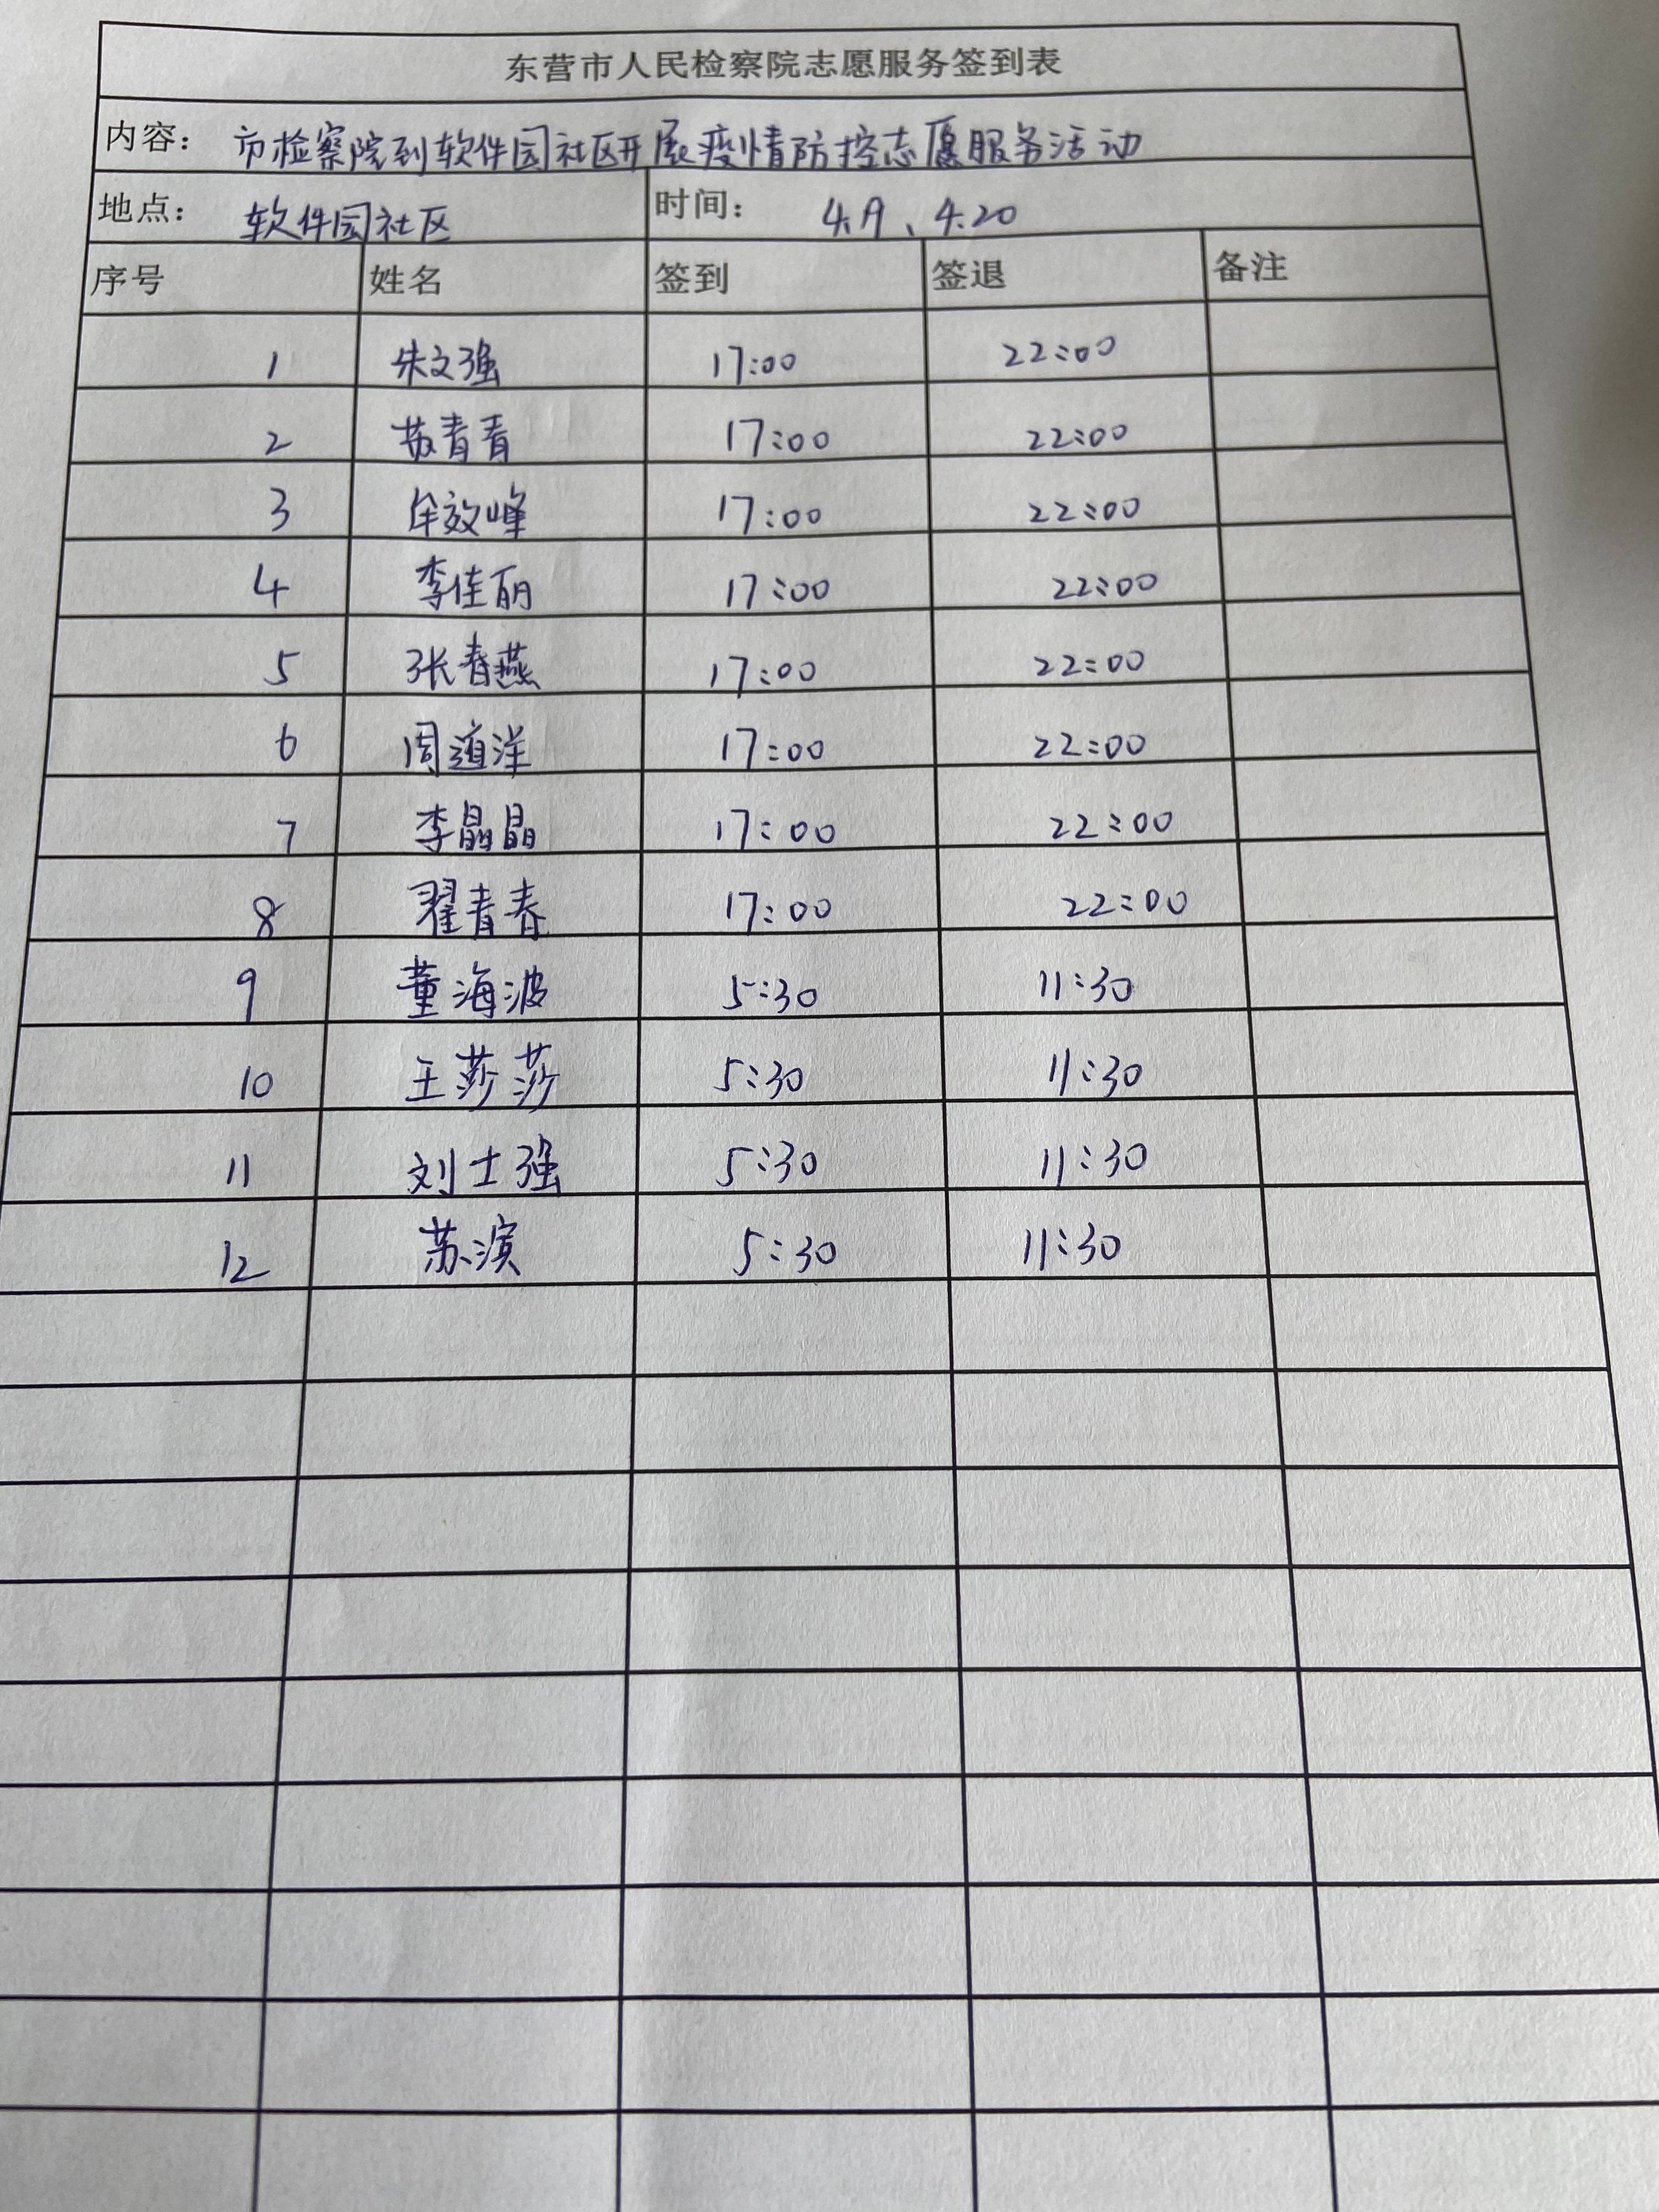 东营市人民检察院志愿服务签到表
内容： 市检察院到软件园社区开展疫情防控志愿服务活动
地点： 软件园社区 时间： 4.19、4.20
序号 姓名 签到 签退 备注
1 朱文强 17:00 22:00
2 苏青青 17:00 22:00
3 牟效峰 17:00 22:00
4 李佳丽 17:00 22:00
5 张春燕 17:00 22:00
6 周道洋 17:00 22:00
7 李晶晶 17:00 22:00
8 翟青春 17:00 22:00
9 董海波 5:30 11:30
10 王莎莎 5:30 11:30
11 刘士强 5:30 11:30
12 苏滨 5:30 11:30